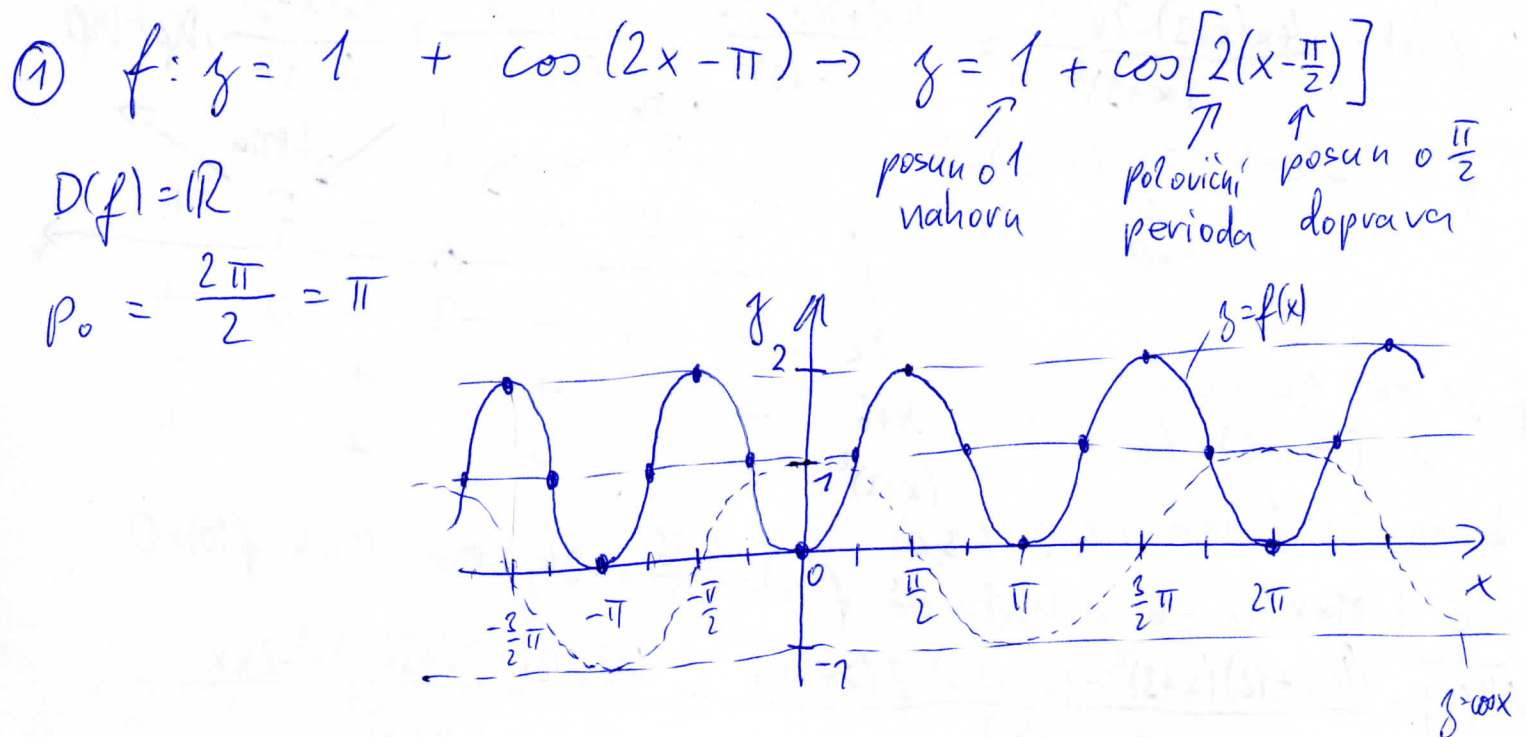 ① f: y = 1 + cos (2x - π) → y = 1 + cos[2(x - π/2)]
posun o 1 nahoru
poloviční perioda
posun o π/2 doprava
D(f) = ℝ
p₀ = 2π/2 = π
y
y = f(x)
2
1
0
-3/2 π
-π
-π/2
π/2
π
3/2 π
2π
x
-1
y = cos x